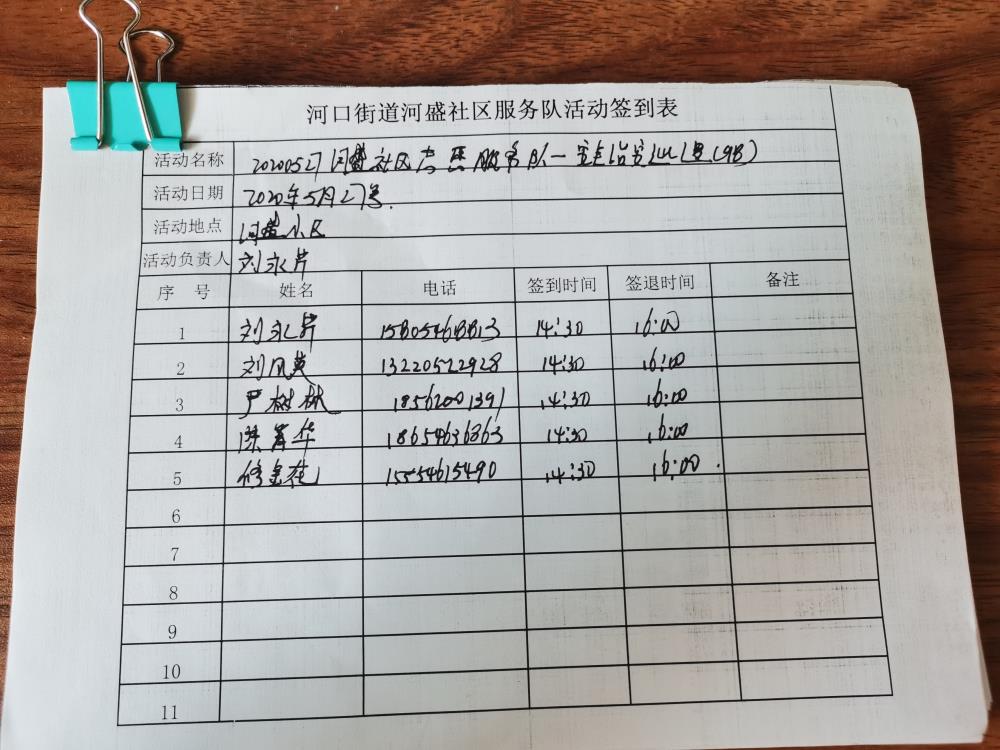 河口街道河盛社区服务队活动签到表
活动名称 20200527河盛社区志愿服务队一
活动日期 2020年5月27号.
活动地点 河盛小区
活动负责人 刘永芹
序号 姓名 电话 签到时间 签退时间 备注
1 刘永芹 15805468813 14:30 16:00
2 刘凤英 13220522928 14:30 16:00
3 严树林 18562001391 14:30 16:00
4 陈 华 18654636363 14:30 16:00
5 修 15554615490 14:30 16:00.
6
7
8
9
10
11